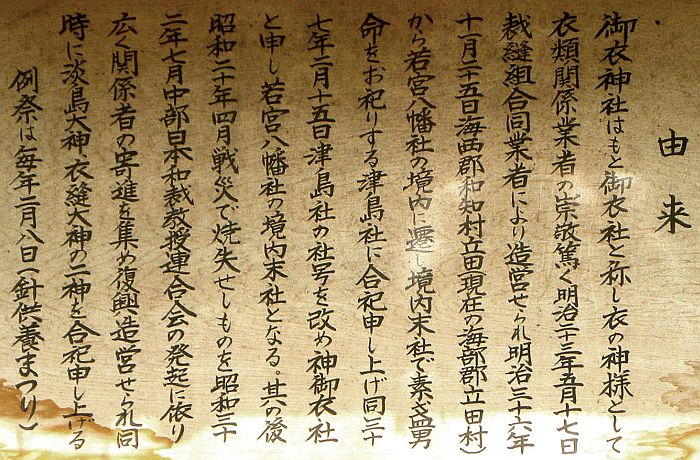 由来
御衣神社はもと御衣社と称し衣の神様として
衣類関係業者の崇敬篤く明治二十三年五月十七日
裁縫組合同業者により造営せられ明治三十六年
十一月二十五日海西郡和知村立田(現在の海部郡立田村)
から若宮八幡社の境内に遷し境内末社で素盞男
命をお祀りする津島社に合祀申し上げ同三十
七年二月十五日津島社の社号を改め神御衣社
と申し若宮八幡社の境内末社となる。其の後
昭和二十年四月戦災で焼失せしものを昭和三十
二年七月中部日本和裁教授連合会の発起に依り
広く関係者の寄進を集め復興造営せられ同
時に淡島大神衣縫大神の二神を合祀申し上げる
例祭は毎年二月八日(針供養まつり)